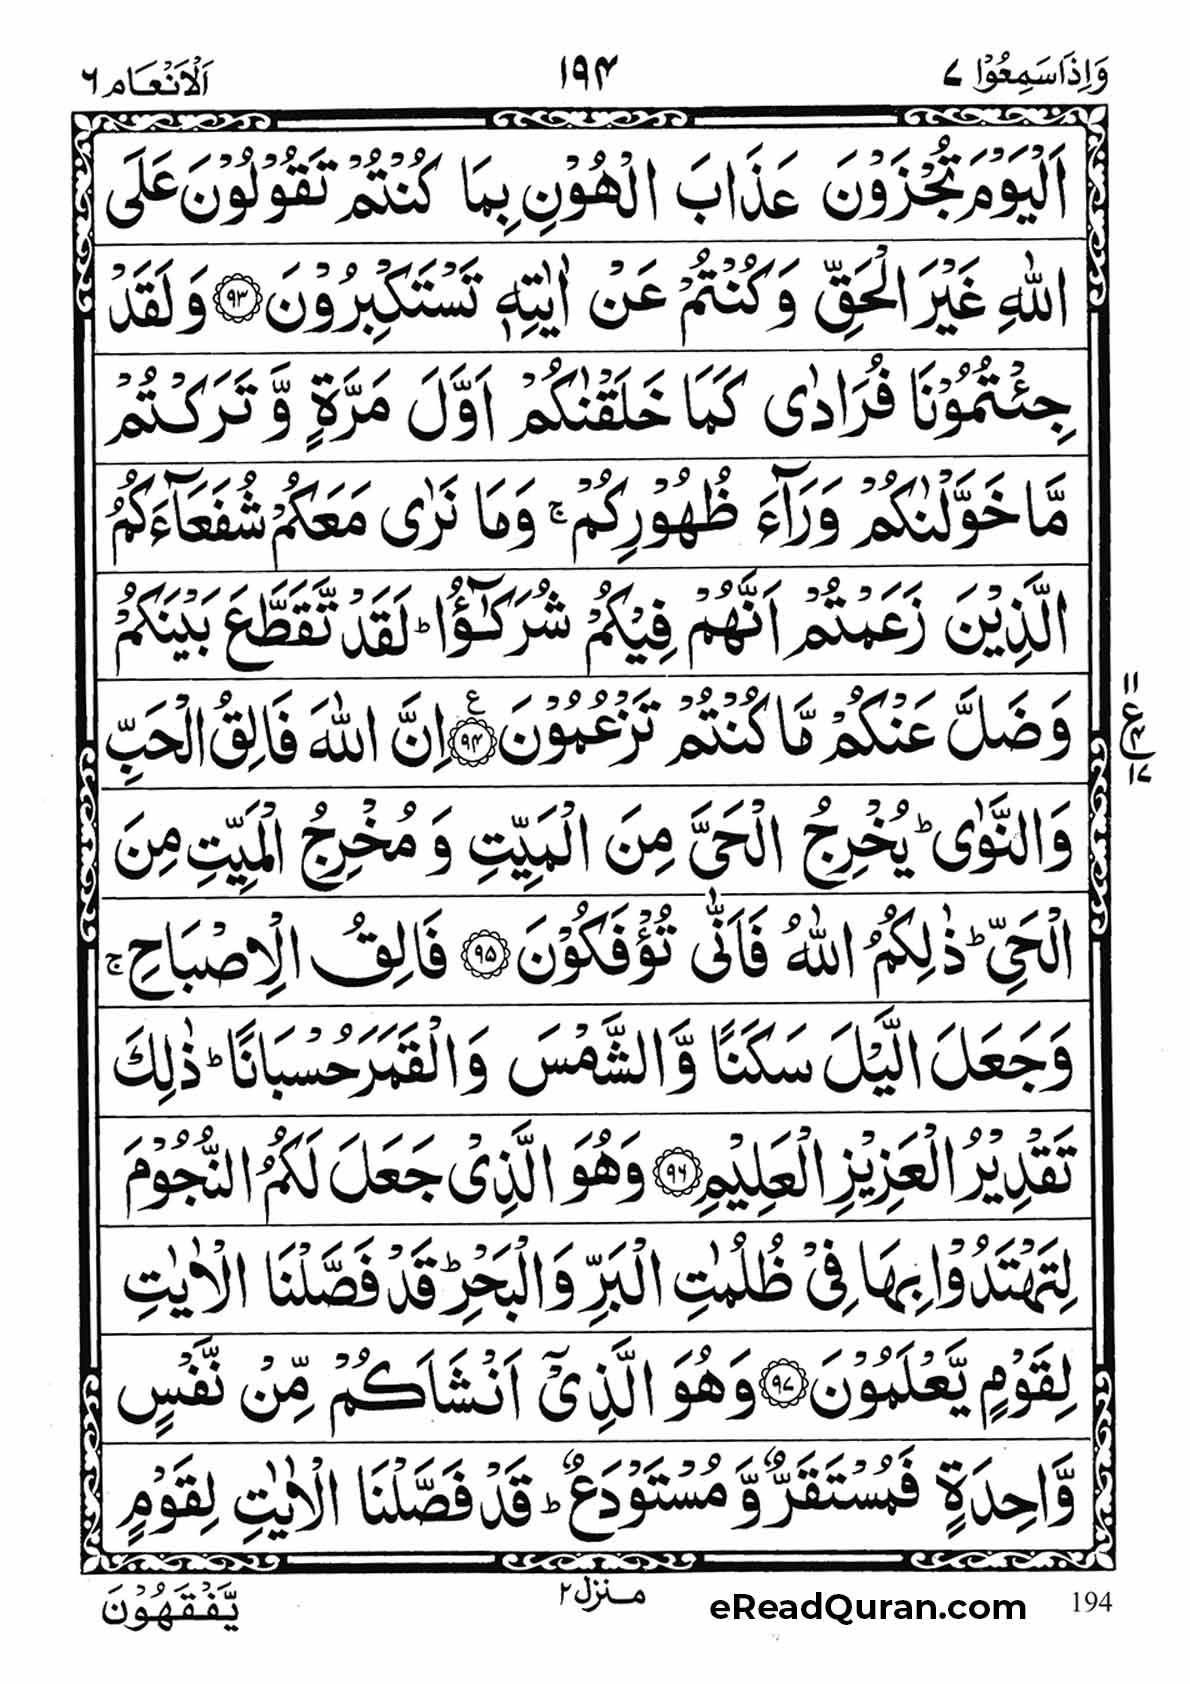 وَاِذَا سَمِعُوْا ۷
۱۹۴
اَلْاَنْعَام ۶
اَلْيَوْمَ تُجْزَوْنَ عَذَابَ الْهُوْنِ بِمَا كُنْتُمْ تَقُوْلُوْنَ عَلَى
اللّٰهِ غَيْرَ الْحَقِّ وَكُنْتُمْ عَنْ اٰيٰتِهٖ تَسْتَكْبِرُوْنَ ۹۳ وَلَقَدْ
جِئْتُمُوْنَا فُرَادٰى كَمَا خَلَقْنٰكُمْ اَوَّلَ مَرَّةٍ وَّ تَرَكْتُمْ
مَّا خَوَّلْنٰكُمْ وَرَآءَ ظُهُوْرِكُمْ ۚ وَمَا نَرٰى مَعَكُمْ شُفَعَآءَكُمُ
الَّذِيْنَ زَعَمْتُمْ اَنَّهُمْ فِيْكُمْ شُرَكٰٓؤُا ؕ لَقَدْ تَّقَطَّعَ بَيْنَكُمْ
وَضَلَّ عَنْكُمْ مَّا كُنْتُمْ تَزْعُمُوْنَ ۹۴ ع اِنَّ اللّٰهَ فَالِقُ الْحَبِّ
وَالنَّوٰى ؕ يُخْرِجُ الْحَىَّ مِنَ الْمَيِّتِ وَ مُخْرِجُ الْمَيِّتِ مِنَ
الْحَىِّ ؕ ذٰلِكُمُ اللّٰهُ فَاَنّٰى تُؤْفَكُوْنَ ۹۵ فَالِقُ الْاِصْبَاحِ ۚ
وَجَعَلَ الَّيْلَ سَكَنًا وَّالشَّمْسَ وَالْقَمَرَ حُسْبَانًا ؕ ذٰلِكَ
تَقْدِيْرُ الْعَزِيْزِ الْعَلِيْمِ ۹۶ وَهُوَ الَّذِىْ جَعَلَ لَكُمُ النُّجُوْمَ
لِتَهْتَدُوْا بِهَا فِىْ ظُلُمٰتِ الْبَرِّ وَالْبَحْرِ ؕ قَدْ فَصَّلْنَا الْاٰيٰتِ
لِقَوْمٍ يَّعْلَمُوْنَ ۹۷ وَهُوَ الَّذِىْٓ اَنْشَاَكُمْ مِّنْ نَّفْسٍ
وَّاحِدَةٍ فَمُسْتَقَرٌّ وَّ مُسْتَوْدَعٌ ؕ قَدْ فَصَّلْنَا الْاٰيٰتِ لِقَوْمٍ
۱۱
ع ۴
۱۷
يَّفْقَهُوْنَ
منزل ۲
eReadQuran.com
194